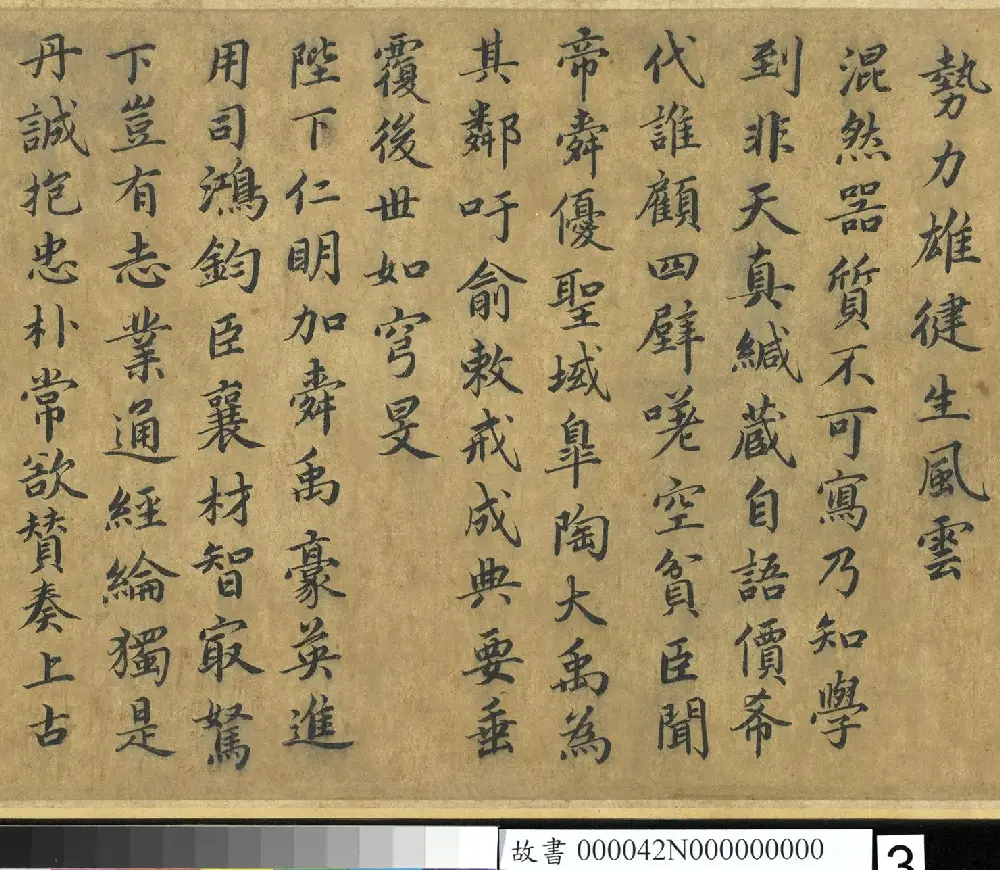 勢力雄健生風雲
混然器質不可寫乃知學
到非天真緘藏自語價希
代誰顧四壁嗟空貧臣聞
帝舜優聖域皐陶大禹為
其鄰吁俞敕戒成典要垂
覆後世如穹旻
陛下仁明加舜禹豪英進
用司鴻鈞臣襄材智最駑
下豈有志業通經綸獨是
丹誠抱忠朴常欲贊奏上古
故書 000042N000000000
3